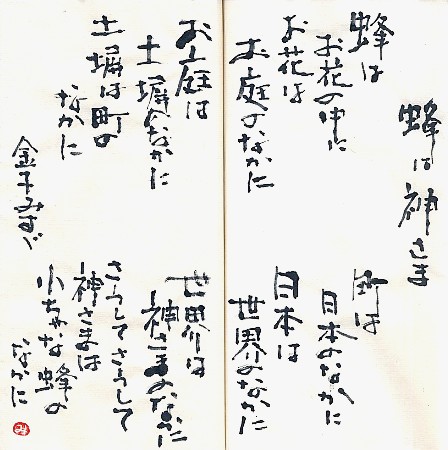 蜂は神さま
蜂は
お花の中に
お花は
お庭のなかに
お庭は
土塀のなかに
土塀は町の
なかに
町は
日本のなかに
日本は
世界のなかに
世界は
神さまのなかに
さうしてさうして
神さまは
小ちゃな蜂の
なかに
金子みすゞ